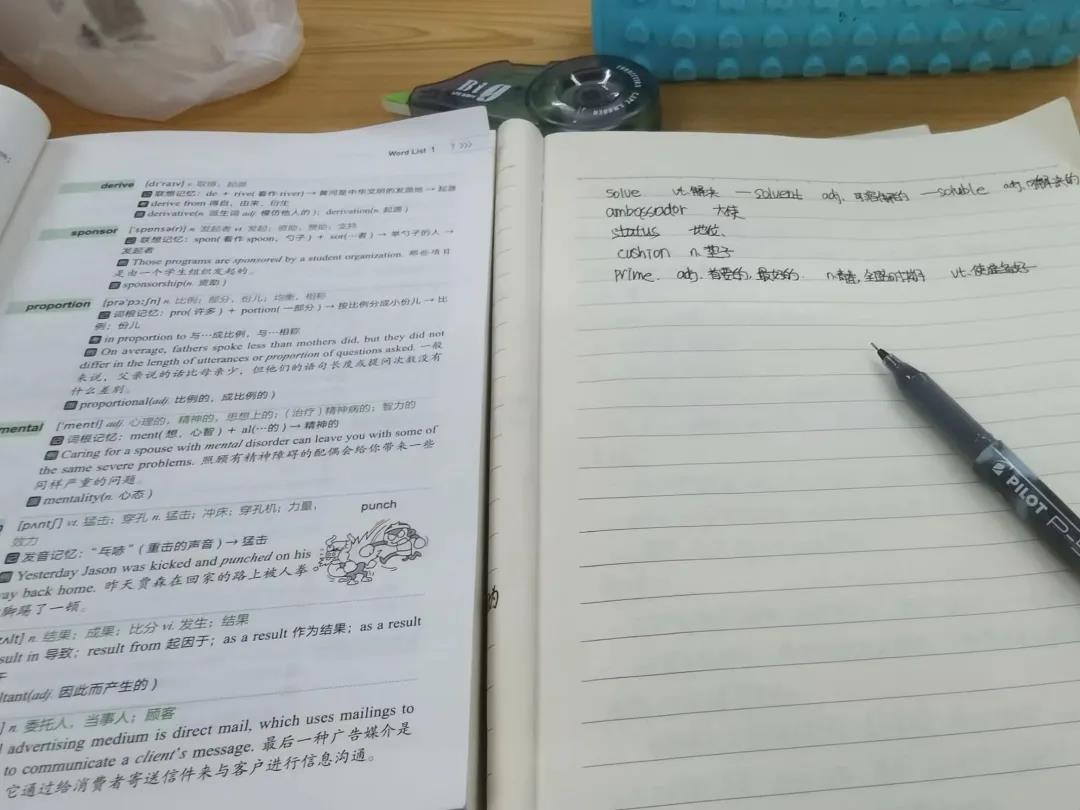 Word List 1
7
derive [dɪˈraɪv] v. 取得；起源
联想记忆：de + rive(看作river)→黄河是中华文明的发源地→起源
derive from 得自，由来，衍生
derivative(n. 派生词 adj. 模仿他人的)；derivation(n. 起源)
sponsor [ˈspɒnsə(r)] n. 发起者 vt. 发起；资助，赞助；支持
联想记忆：spon(看作spoon，勺子) + sor(…者)→举勺子的人→
发起者
Those programs are sponsored by a student organization. 那些项目
是由一个学生组织发起的。
sponsorship(n. 资助)
proportion [prəˈpɔːʃn] n. 比例；部分，份儿；均衡，相称
词根记忆：pro(许多) + portion(一部分)→按比例分成小份儿→比
例；份儿
in proportion to 与…成比例，与…相称
On average, fathers spoke less than mothers did, but they did not
differ in the length of utterances or proportion of questions asked. 一般
来说，父亲说的话比母亲少，但他们的语句长度或提问次数没有
什么差别。
proportional(adj. 比例的，成比例的)
mental [ˈmentl] adj. 心理的，精神的，思想上的；(治疗)精神病的；智力的
词根记忆：ment(想，心智) + al(…的)→精神的
Caring for a spouse with mental disorder can leave you with some of
the same severe problems. 照顾有精神障碍的配偶会给你带来一些
同样严重的问题。
mentality(n. 心态)
[pʌntʃ] vt. 猛击；穿孔 n. 猛击；冲床；穿孔机；力量，
效力
punch
发音记忆："乓哧"(重击的声音)→猛击
Yesterday Jason was kicked and punched on his
way back home. 昨天贾森在回家的路上被人拳
脚踢了一顿。
n. 结果；成果；比分 vi. 发生；结果
result in 导致；result from 起因于；as a result 作为结果；as a result
(adj. 因此而产生的)
n. 委托人，当事人；顾客
advertising medium is direct mail, which uses mailings to
to communicate a client's message. 最后一种广告媒介是
它通过给消费者寄送信件来与客户进行信息沟通。
solve vt. 解决 — solvent adj. 可溶解的 — soluble adj.
ambassador 大使
status 地位
cushion n. 垫子
prime. adj. 首要的，最好的. n. 全盛时期 vt. 使准备好
的
PILOT